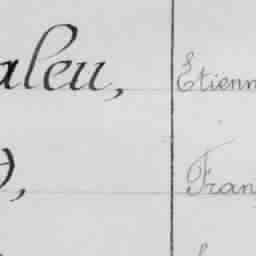 aleu, Etienn
), Fran